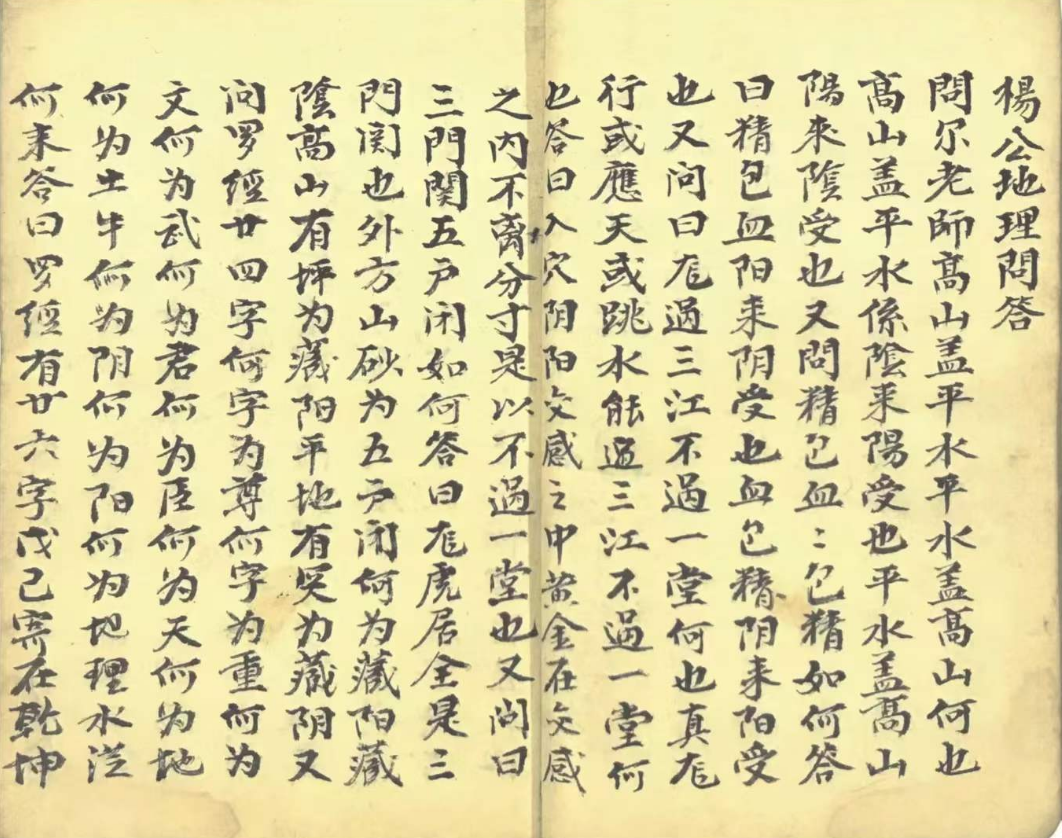 楊公地理問答
問尔老師高山盖平水平水盖高山何也
高山盖平水係陰来陽受也平水盖高山
陽來陰受也又問精包血〻包精如何答
曰精包血阳来阴受也血包精阴来阳受
也又问曰龙過三江不過一堂何也真龙
行或應天或跳水能過三江不過一堂何
也答曰入穴阴阳交感之中黄金在交感
之内不离分寸是以不過一堂也又问曰
三門關五户闭如何答曰龙虎居全是三
門関也外方山砂为五户闭何为藏阳藏
陰高山有坪为藏阳平地有突为藏阴又
问罗經廿四字何字为尊何字为重何为
文何为武何为君何为臣何为天何为地
何为土牛何为阴何为阳何为地理水从
何来答曰罗經有廿六字戊己寄在乾坤